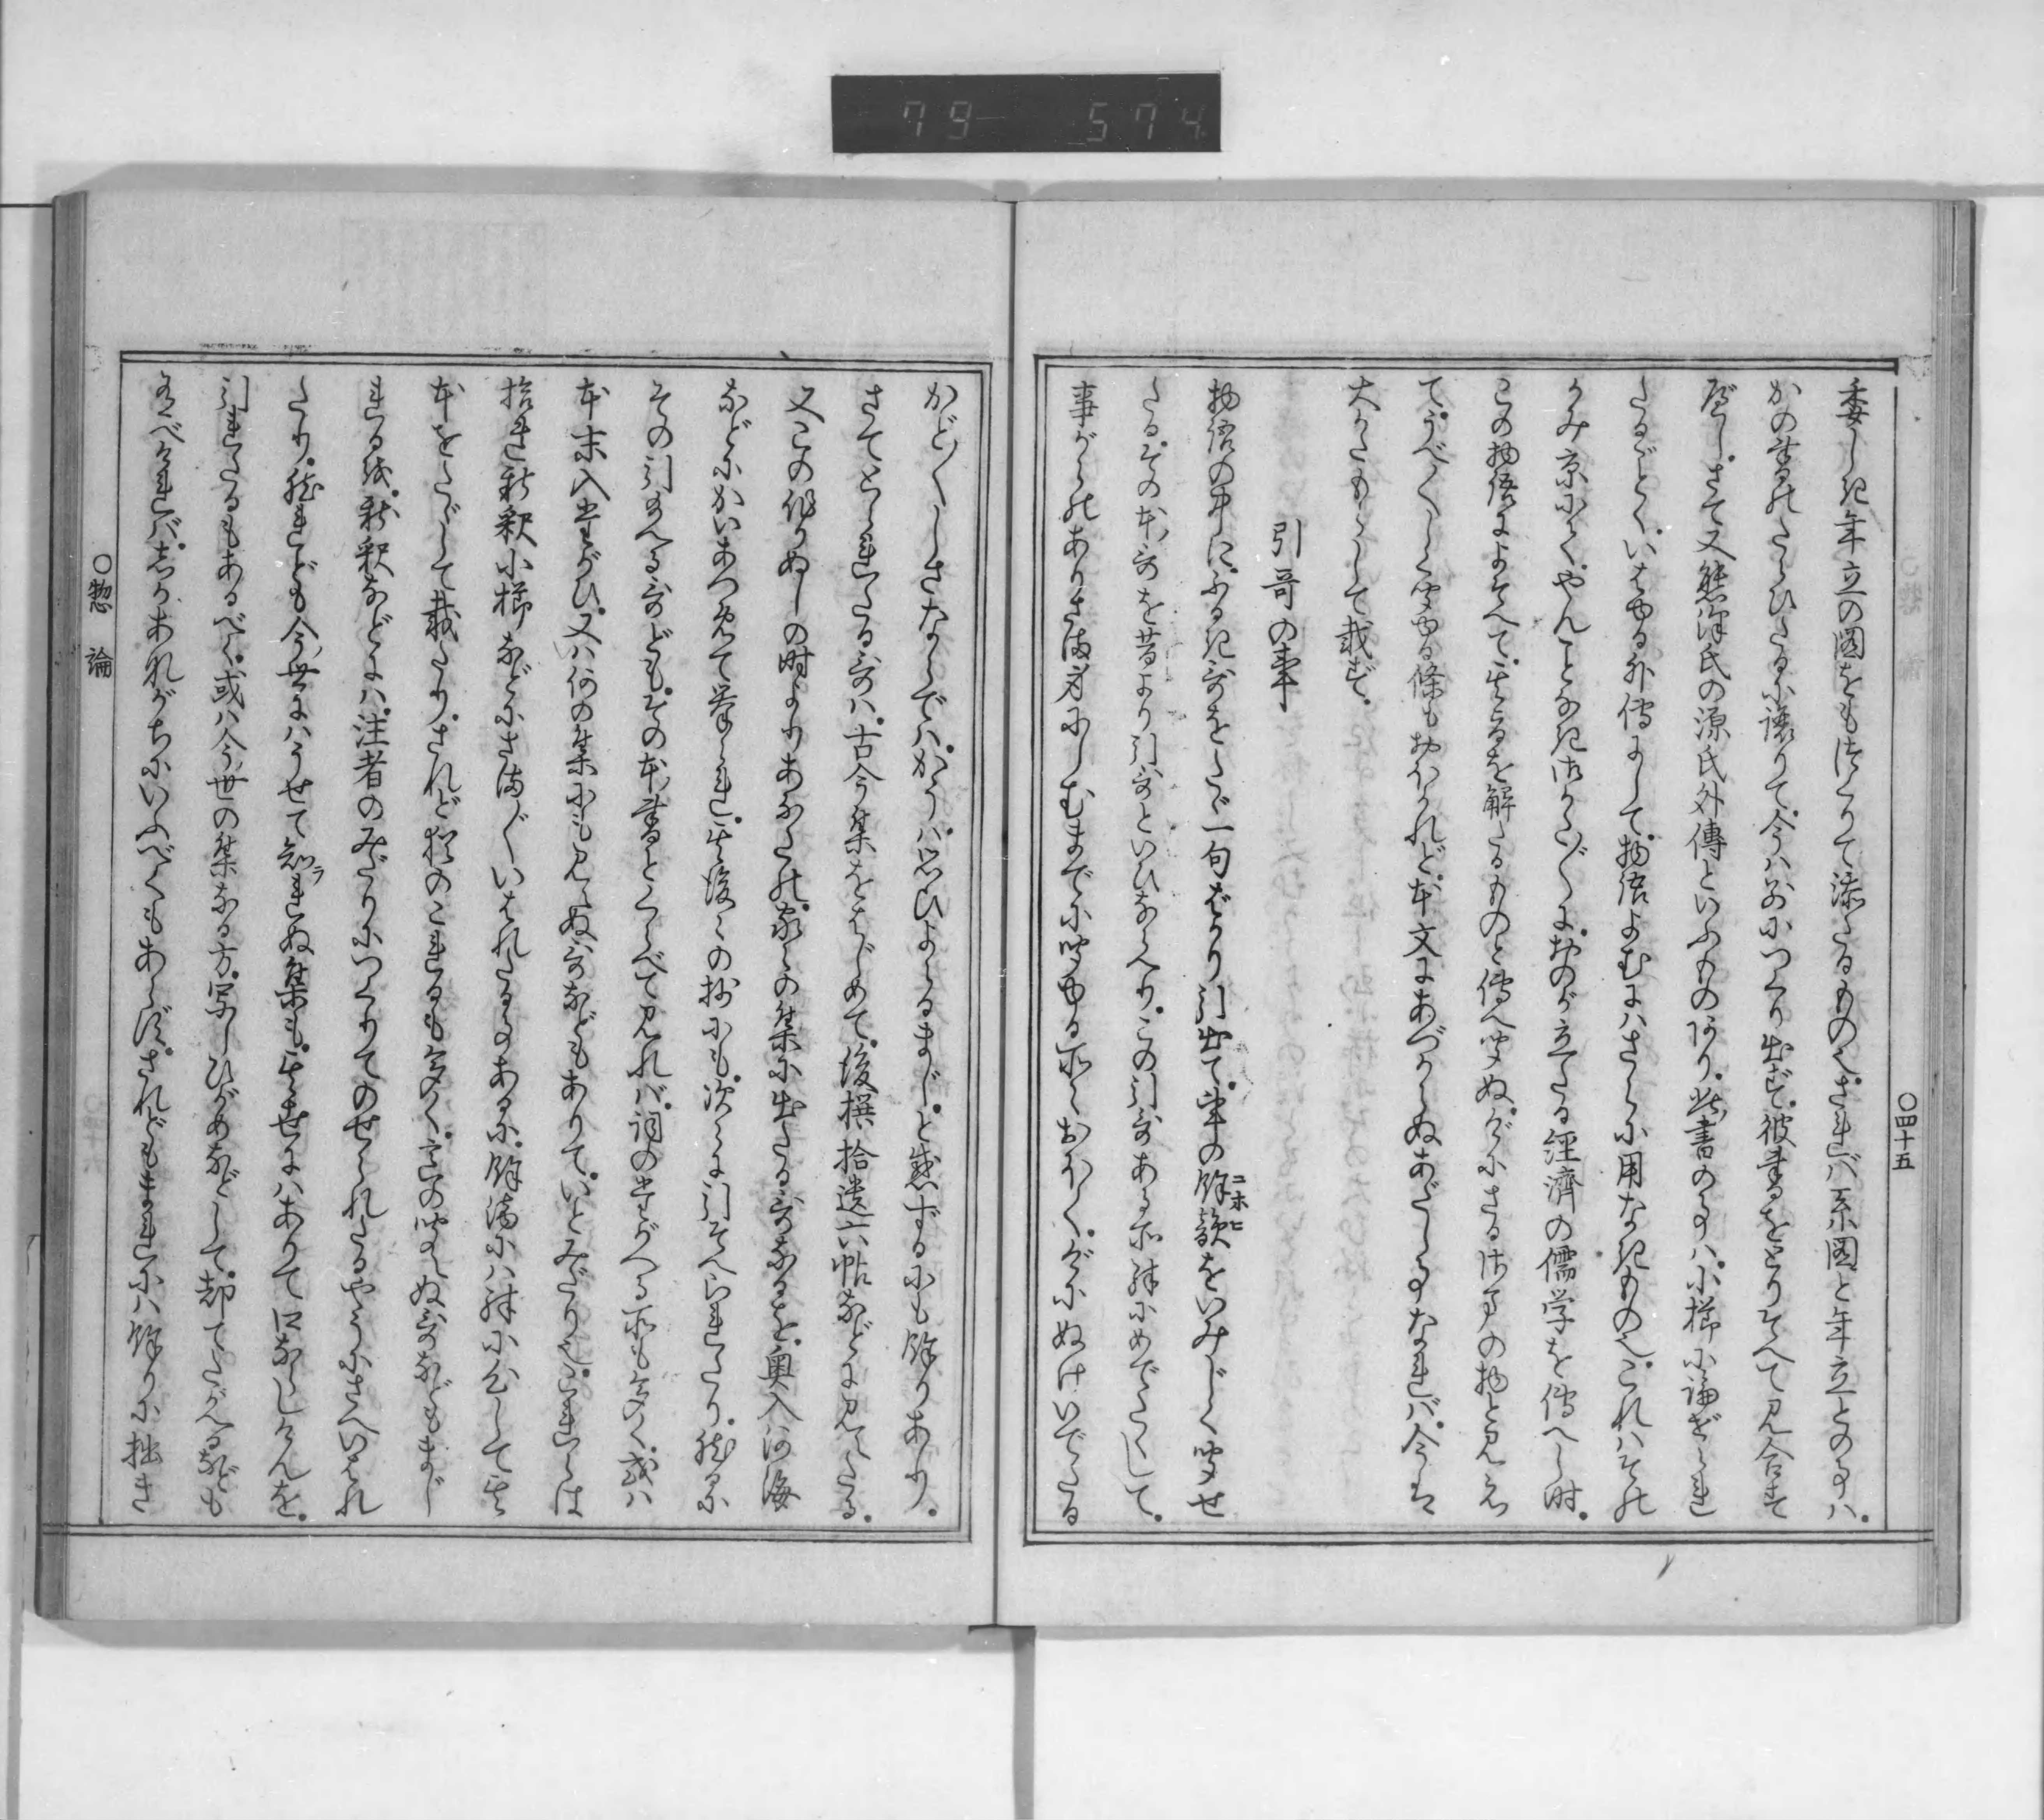 79 574
〇四十五
委しき年立の図をも作りて添たるもの也。されバ系図と年立との事ハ。
かの書のたぐひなるに譲りて。今ハ別につくり出ず。彼書をとりそへて見合す
べし。さて又熊澤氏の源氏外傳といふものあり。此書の事ハ。小櫛に論ぜられ
たるごとく。いはゆる外傳にして。物語よむにハさらに用なきもの也。これハその
かみ京にて。やんごとなき御かた〴〵に。おのが立たる經濟の儒学を傳へし時。
この物語によそへて。其旨を解たるものと傳へ聞ぬ。げにさる御为の物と見え
て。うべ〳〵しく聞ゆる條もおほかれど。本文にあづからぬあだし事なれバ。今は
大かたもらして載ず。
引哥の事
物語の中に。ふるき哥をたゞ一句ばかり引出て。事の餘韻をいみじく聞せ
たる。その本哥を昔より引哥といひならへり。この引哥ある所殊にめでたくして。
事がらのありさま身にしむまでに聞ゆる所々おほく。げにぬけいでたる
かど〳〵しさならでハ。かうハ思ひよるまじと感ずるにも餘りあり。
さてとられたる哥ハ。古今集をはじめて。後撰拾遺六帖などに見えたる。
又この作りぬしの時よりあなたの。家々の集に出たる哥なるを。奥入河海
などにかいあつめて挙られ。其後々の抄にも。次々に引そへられたり。然るに
その引れたる哥ども。その本書とくらべて見れバ。詞のたがへる所も多く。或ハ
本末入たがひ。又ハ何の集にも見えぬ哥などもありて。いとみだり也。これらは
拾遺新釈小櫛などにさま〴〵いはれたる事あるに。餘滴にハ殊に委しくて其
本をたゞして載たり。されど猶のこれるも多く。その聞えぬ哥などもまじ
れるを。新釈などにハ。注者のみだりにつくりてのせられたるやうにさへいはれ
たり。然れども今世にハうせて知ラれぬ集も。其世にハありて口なれしけんを。
引れたるもあるべく。或ハ今世の集なる方。写しひがめなどして。却てたがへるなども
有べければ。しかあながちにいふべくもあらず。されどもまれにハ餘りに拙き
〇惣論